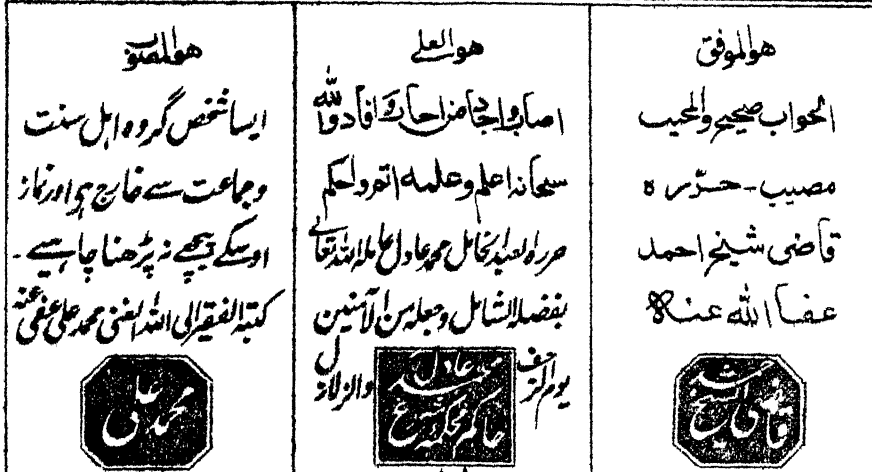 هو الموفق
الجواب صحیح والمجیب
مصیب ۔ حررہ
قاضی شیخ احمد
عفا اللہ عنہ
ھو العلی
اصاب واجاد من اجاب و افاد واللہ
سبحانہ اعلم وعلمہ اتم واحکم
حررہ العبد الخامل محمد عادل عاملہ اللہ تعالی
بفضلہ الشامل وجعلہ من الآمنین
یوم الزحف والزلازل
محمد عادل
حاکم محکمہ شرع
ھو المصوب
ایسا شخص گروہ اہل سنت
وجماعت سے خارج ہی اور نماز
اوسکے پیچھے نہ پڑھنا چاہیے ۔
کتبہ الفقیر الی اللہ الغنی محمد علی عفی عنہ
محمد علی